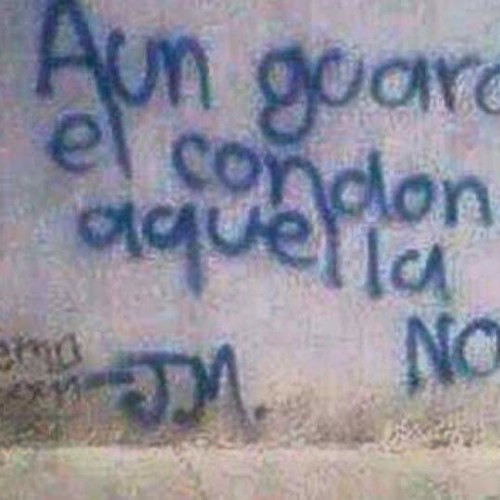 Aun guard
el condon
aquella
No
JM.